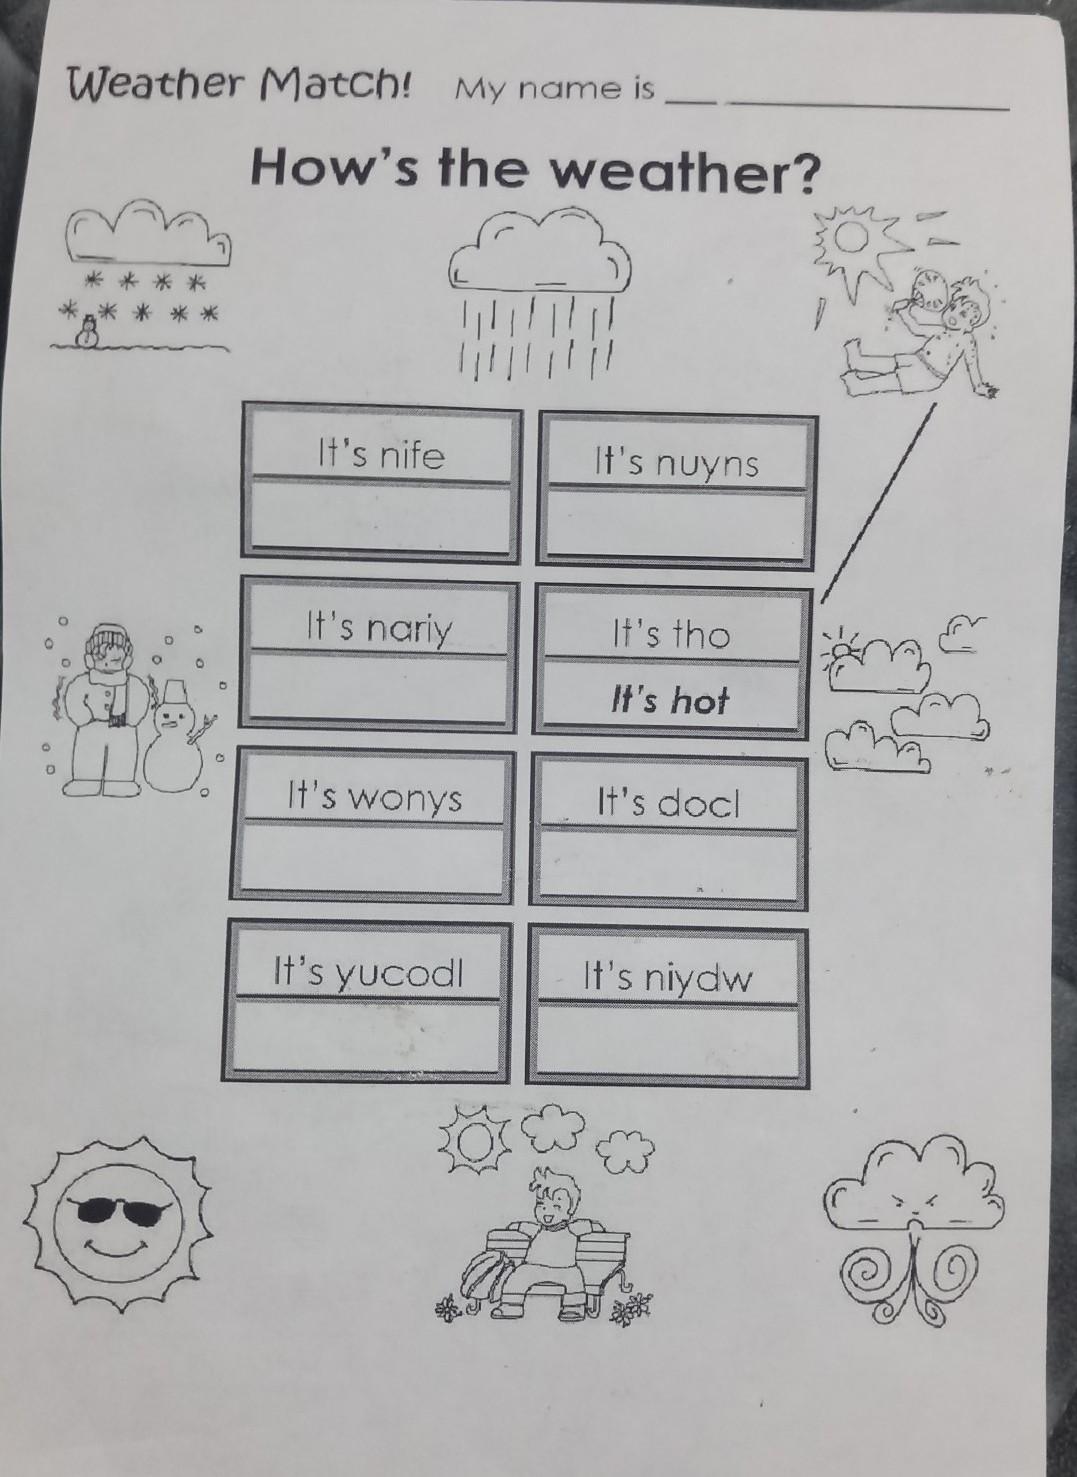 Weather Match! My name is
How's the weather?
It's nife
It's nuyns
It's nariy
It's tho
It's hot
It's wonys
It's docl
It's yucodl
It's niydw